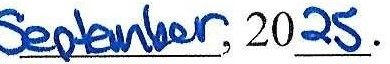 September, 2025.